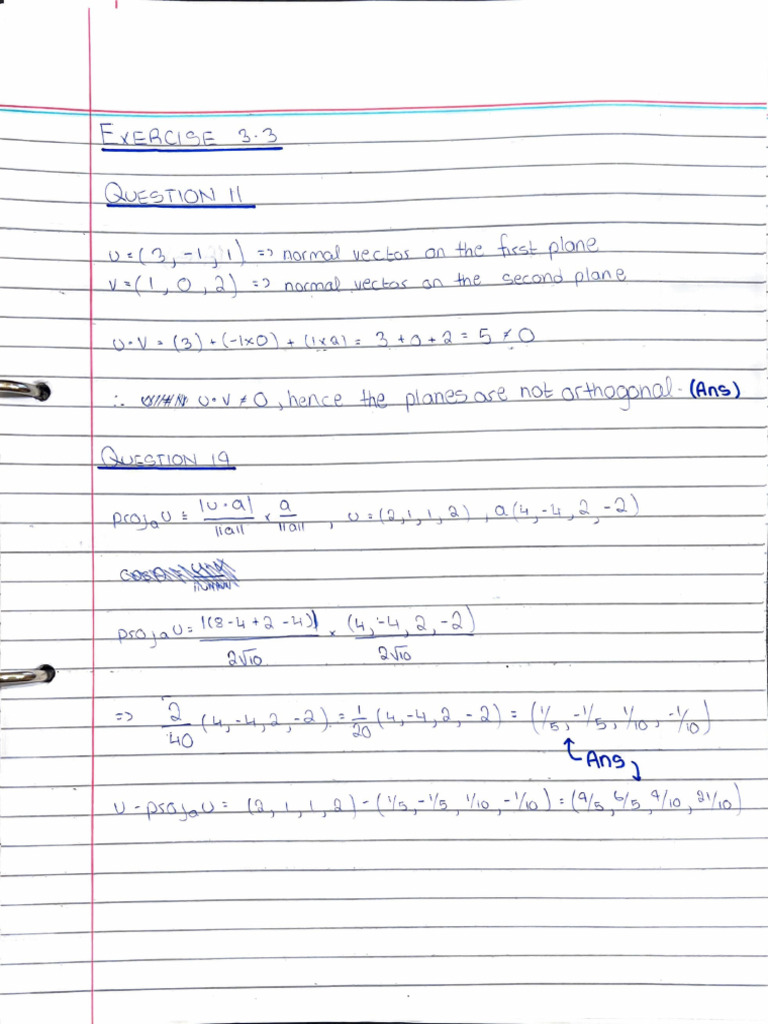 EXERCISE 3.3
QUESTION 11
u=(3,-1,1) => normal vector on the first plane
v=(1,0,2) => normal vector on the second plane
u·v = (3)+(-1×0)+(1×2) = 3+0+2 = 5 ≠ 0
∴ u·v ≠ 0, hence the planes are not orthogonal. (Ans)
QUESTION 19
projₐu = |u·a|/||a|| × a/||a|| , u=(2,1,1,2) , a(4,-4,2,-2)
projₐu = |(8-4+2-4)|/2√10 × (4,-4,2,-2)/2√10
=> 2/40 (4,-4,2,-2) = 1/20 (4,-4,2,-2) = (1/5, -1/5, 1/10, -1/10)
Ans
u - projₐu = (2,1,1,2)-(1/5,-1/5,1/10,-1/10) = (9/5, 6/5, 9/10, 21/10)